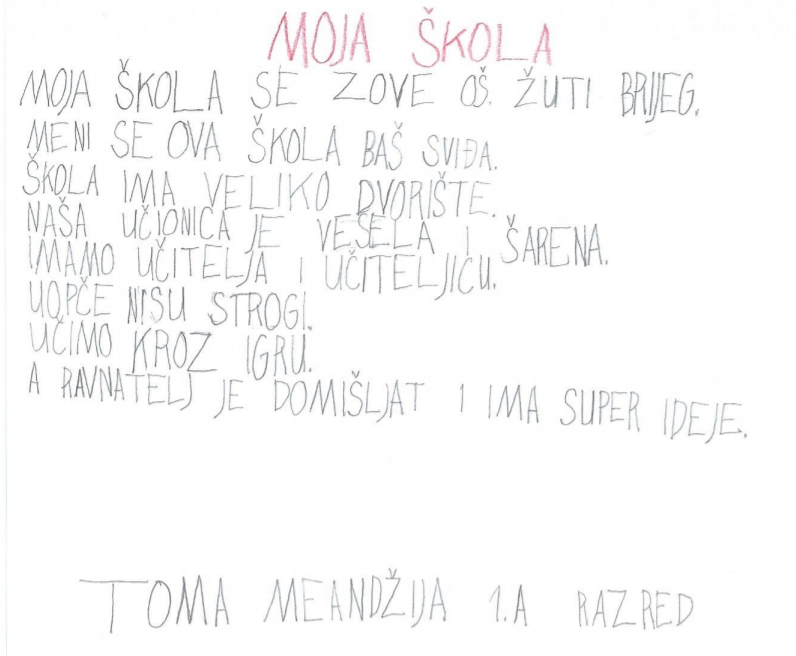 MOJA ŠKOLA
MOJA ŠKOLA SE ZOVE OŠ. ŽUTI BRIJEG.
MENI SE OVA ŠKOLA BAŠ SVIĐA.
ŠKOLA IMA VELIKO DVORIŠTE.
NAŠA UČIONICA JE VEŠELA I ŠARENA.
IMAMO UČITELJA I UČITELJICU.
UOPČE NISU STROGI.
UČIMO KROZ IGRU.
A RAVNATELJ JE DOMIŠLJAT I IMA SUPER IDEJE.
TOMA MEANDŽIJA 1.A RAZRED